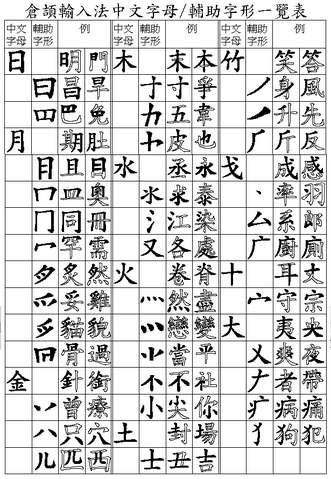 倉頡輸入法中文字母/輔助字形一覽表
中文字母 輔助字形 例 中文字母 輔助字形 例 中文字母 輔助字形 例
日 明 門 木 末 本 竹 笑 答
曰 昌 旱 寸 寸 爭 丿 身 風
巴 免 五 韋 升 先
月 期 肚 皮 也 厂 斤 反
目 且 目 水 丞 永 戈 成 感
皿 奧 氺 求 泰 丶 率 羽
冂 同 冊 氵 江 染 厶 系 郎
冖 罕 需 又 各 處 广 廚 廁
炙 然 火 卷 脊 十 耳 丈
爫 妥 雞 灬 然 盡 宀 守 宗
貓 貌 戀 變 大 夷 央
骨 過 當 平 乂 爽 夜
金 針 銜 不 社 𠂇 者 帶
丷 曾 療 小 尖 你 疒 病 痛
八 只 穴 土 封 場 犭 狗 犯
儿 匹 西 士 丑 吉